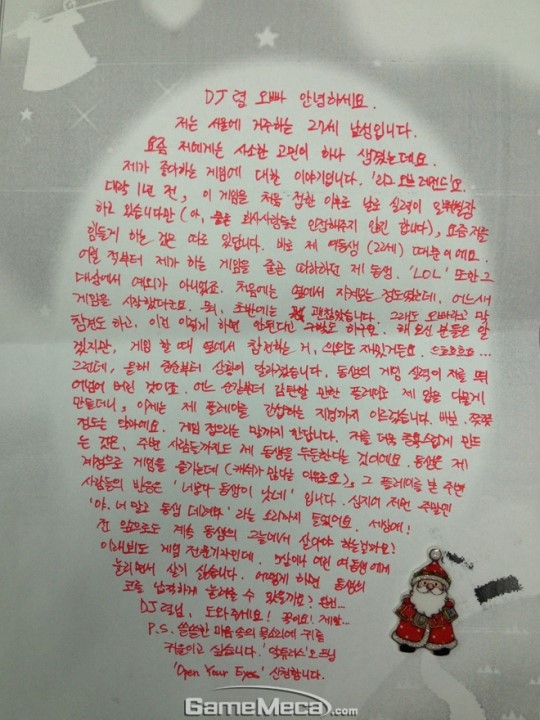 DJ 렴 오빠 안녕하세요.
저는 서울에 거주하는 27세 남성입니다.
요즘 저에게는 사소한 고민이 하나 생겼는데요.
제가 좋아하는 게임에 대한 이야기입니다. '리그 오브 레전드'요.
대략 1년 전, 이 게임을 처음 접한 이후로 날로 실력이 일취월장
하고 있습니다만 (아, 물론 회사사람들은 인정해주지 않긴 합니다), 요즘 저를
힘들게 하는 것은 따로 있답니다. 바로 제 여동생 (22세) 때문이에요.
어릴 적부터 제가 하는 게임을 줄곧 따라하던 제 동생. 'LOL' 또한 그
대상에서 예외가 아니었죠. 처음에는 옆에서 지켜보는 정도였는데, 어느새
게임을 시작했더군요. 뭐, 초반에는 괜찮았습니다. 그래도 오빠라고 막
참견도 하고, 이건 이렇게 하면 안된다고 구박도 하구요. 해 보신 분들은 알
겠지만, 게임 할 때 옆에서 참견하는 거, 의외로 재밌거든요. 으흐흐흐흐...
그런데, 올해 중순부터 상황이 달라졌습니다. 동생의 게임 실력이 저를 뛰
어넘어 버린 것이죠. 어느 순간부터 감탄할 만한 플레이로 제 입을 다물게
만들더니, 이제는 제 플레이를 간섭하는 지경까지 이르렀습니다. 바보,
정도는 약과에요. 게임 접으라는 말까지 한답니다. 저를 더욱 고통스럽게 만드
는 것은, 주변 사람들까지도 제 동생을 두둔한다는 것이에요. 동생은 제
계정으로 게임을 즐기는데 (캐쉬가 많다는 이유로요), 그 플레이를 본 주변
사람들의 반응은 '너보다 동생이 낫네' 입니다. 심지어 저번 주말엔
'야, 너 말고 동생 데려와' 라는 소리까지 들었어요. 세상에!
전 앞으로도 계속 동생의 그늘에서 살아야 하는걸까요?
이래뵈도 게임 전문기자인데. 5살이나 어린 여동생에게
눌리면서 살기 싫습니다. 어떻게 하면 동생의
코를 납작하게 눌러줄 수 있을까요?
DJ렴님, 도와주세요! 꽁이요! 제발...
P.S. 쓸쓸한 마음속의 목소리에 귀를
귀울이고 싶습니다. '알튜러스'오드님
'Open Your Eyes' 신청합니다.
GameMeca.com